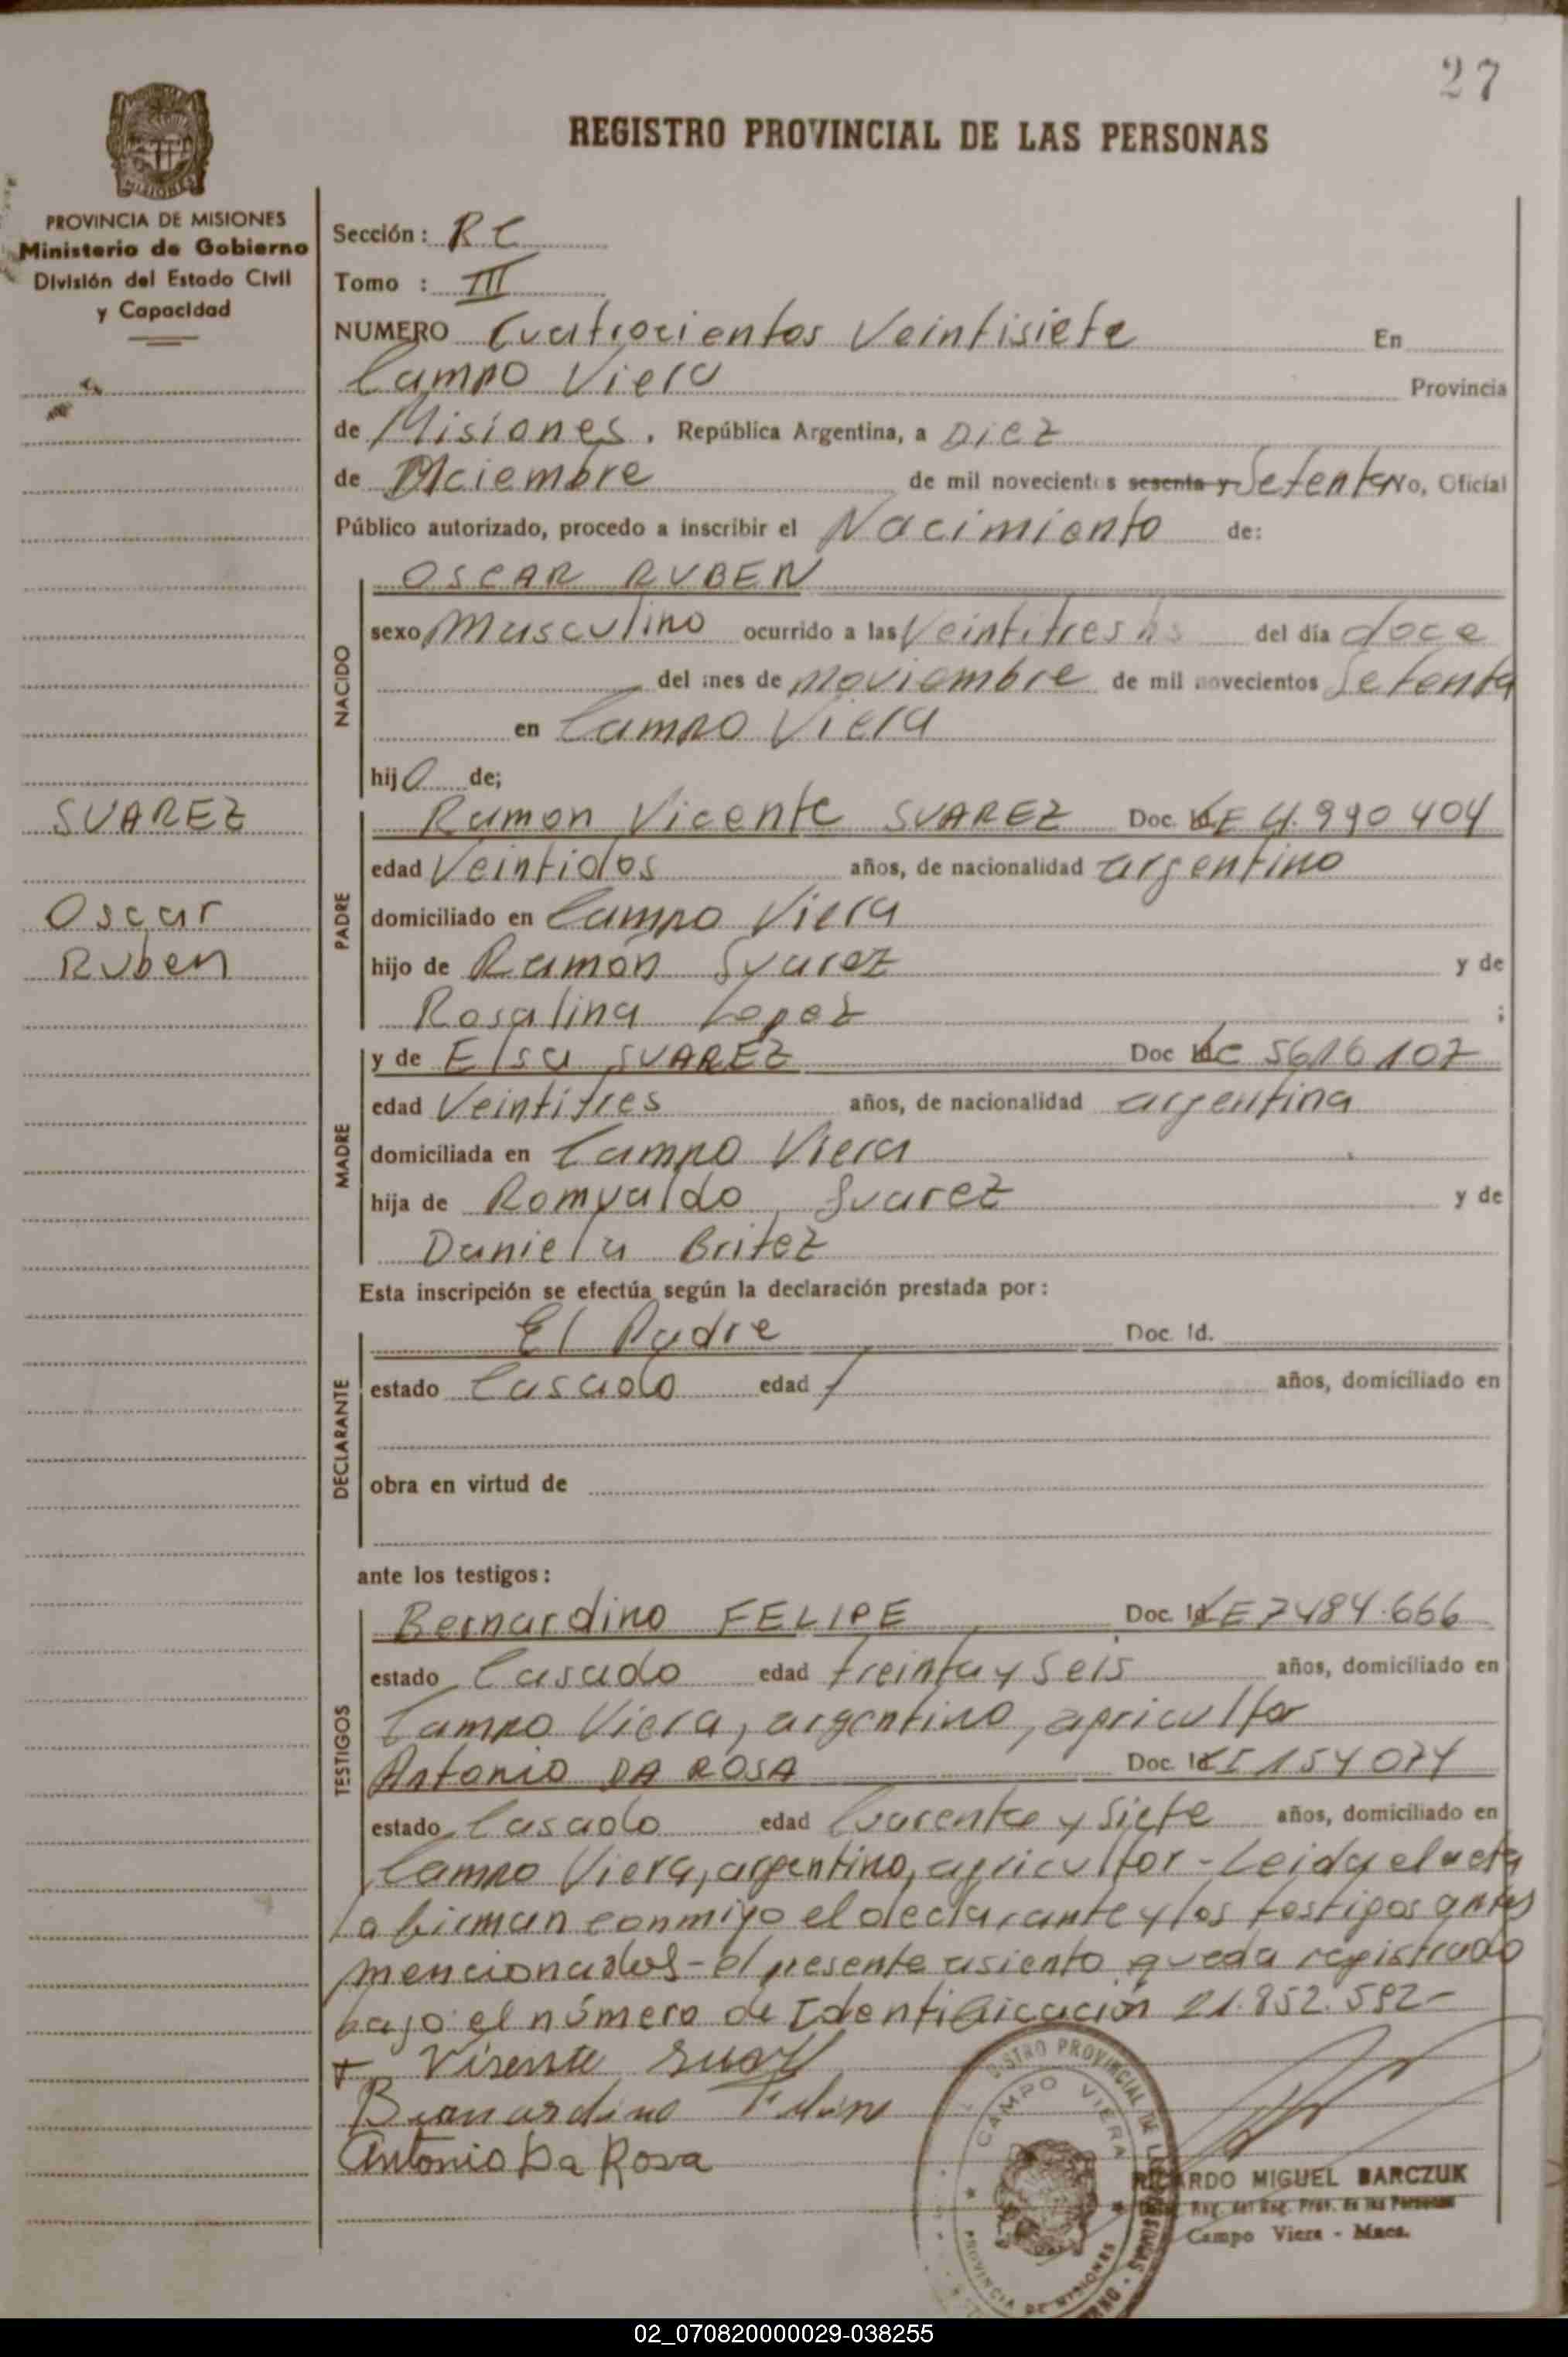 27
REGISTRO PROVINCIAL DE LAS PERSONAS
MISIONES
PROVINCIA DE MISIONES
Ministerio de Gobierno
División del Estado Civil
y Capacidad
SUAREZ
Oscar
Ruben
Sección: RC
Tomo : III
NUMERO Cuatrocientos Veintisiete En
Campo Viera Provincia
de Misiones. República Argentina, a Diez
de Diciembre de mil novecientos sesenta y Setenta Yo, Oficial
Público autorizado, procedo a inscribir el Nacimiento de:
NACIDO
OSCAR RUBEN
sexo Masculino ocurrido a las Veintitres hs del día doce
del mes de noviembre de mil novecientos Setenta
en Campo Viera
hijo de;
PADRE
Ramon Vicente SUAREZ Doc. LE
edad Veintidos años, de nacionalidad argentino
domiciliado en Campo Viera
hijo de Ramón Suarez y de
Rosalina Lopez ;
MADRE
y de Elsa SUAREZ Doc LC 5616107
edad Veintitres años, de nacionalidad argentina
domiciliada en Campo Viera
hija de Romualdo Suarez y de
Daniela Britez
Esta inscripción se efectúa según la declaración prestada por:
DECLARANTE
El Padre Doc. Id.
estado Casado edad / años, domiciliado en
obra en virtud de
ante los testigos:
TESTIGOS
Bernardino FELIPE Doc. Id LE 7484.666
estado Casado edad treinta y Seis años, domiciliado en
Campo Viera, argentino, agricultor
Antonio DA ROSA Doc. Id 154074
estado Casado edad Cuarenta y Siete años, domiciliado en
Campo Viera, argentino, agricultor - Leida el acta
la firman conmigo el declarante y los testigos antes
mencionados - el presente asiento queda registrado
bajo el número de Identificación 21.852.592-
Visente Suarez
Bernardino Felipe
Antonio Da Rosa
REGISTRO PROVINCIAL DE LAS PERSONAS
CAMPO VIERA
PROVINCIA DE MISIONES
RICARDO MIGUEL BARCZUK
Reg. del Reg. Prov. de las Personas
Campo Viera - Mnes.
02_070820000029-038255